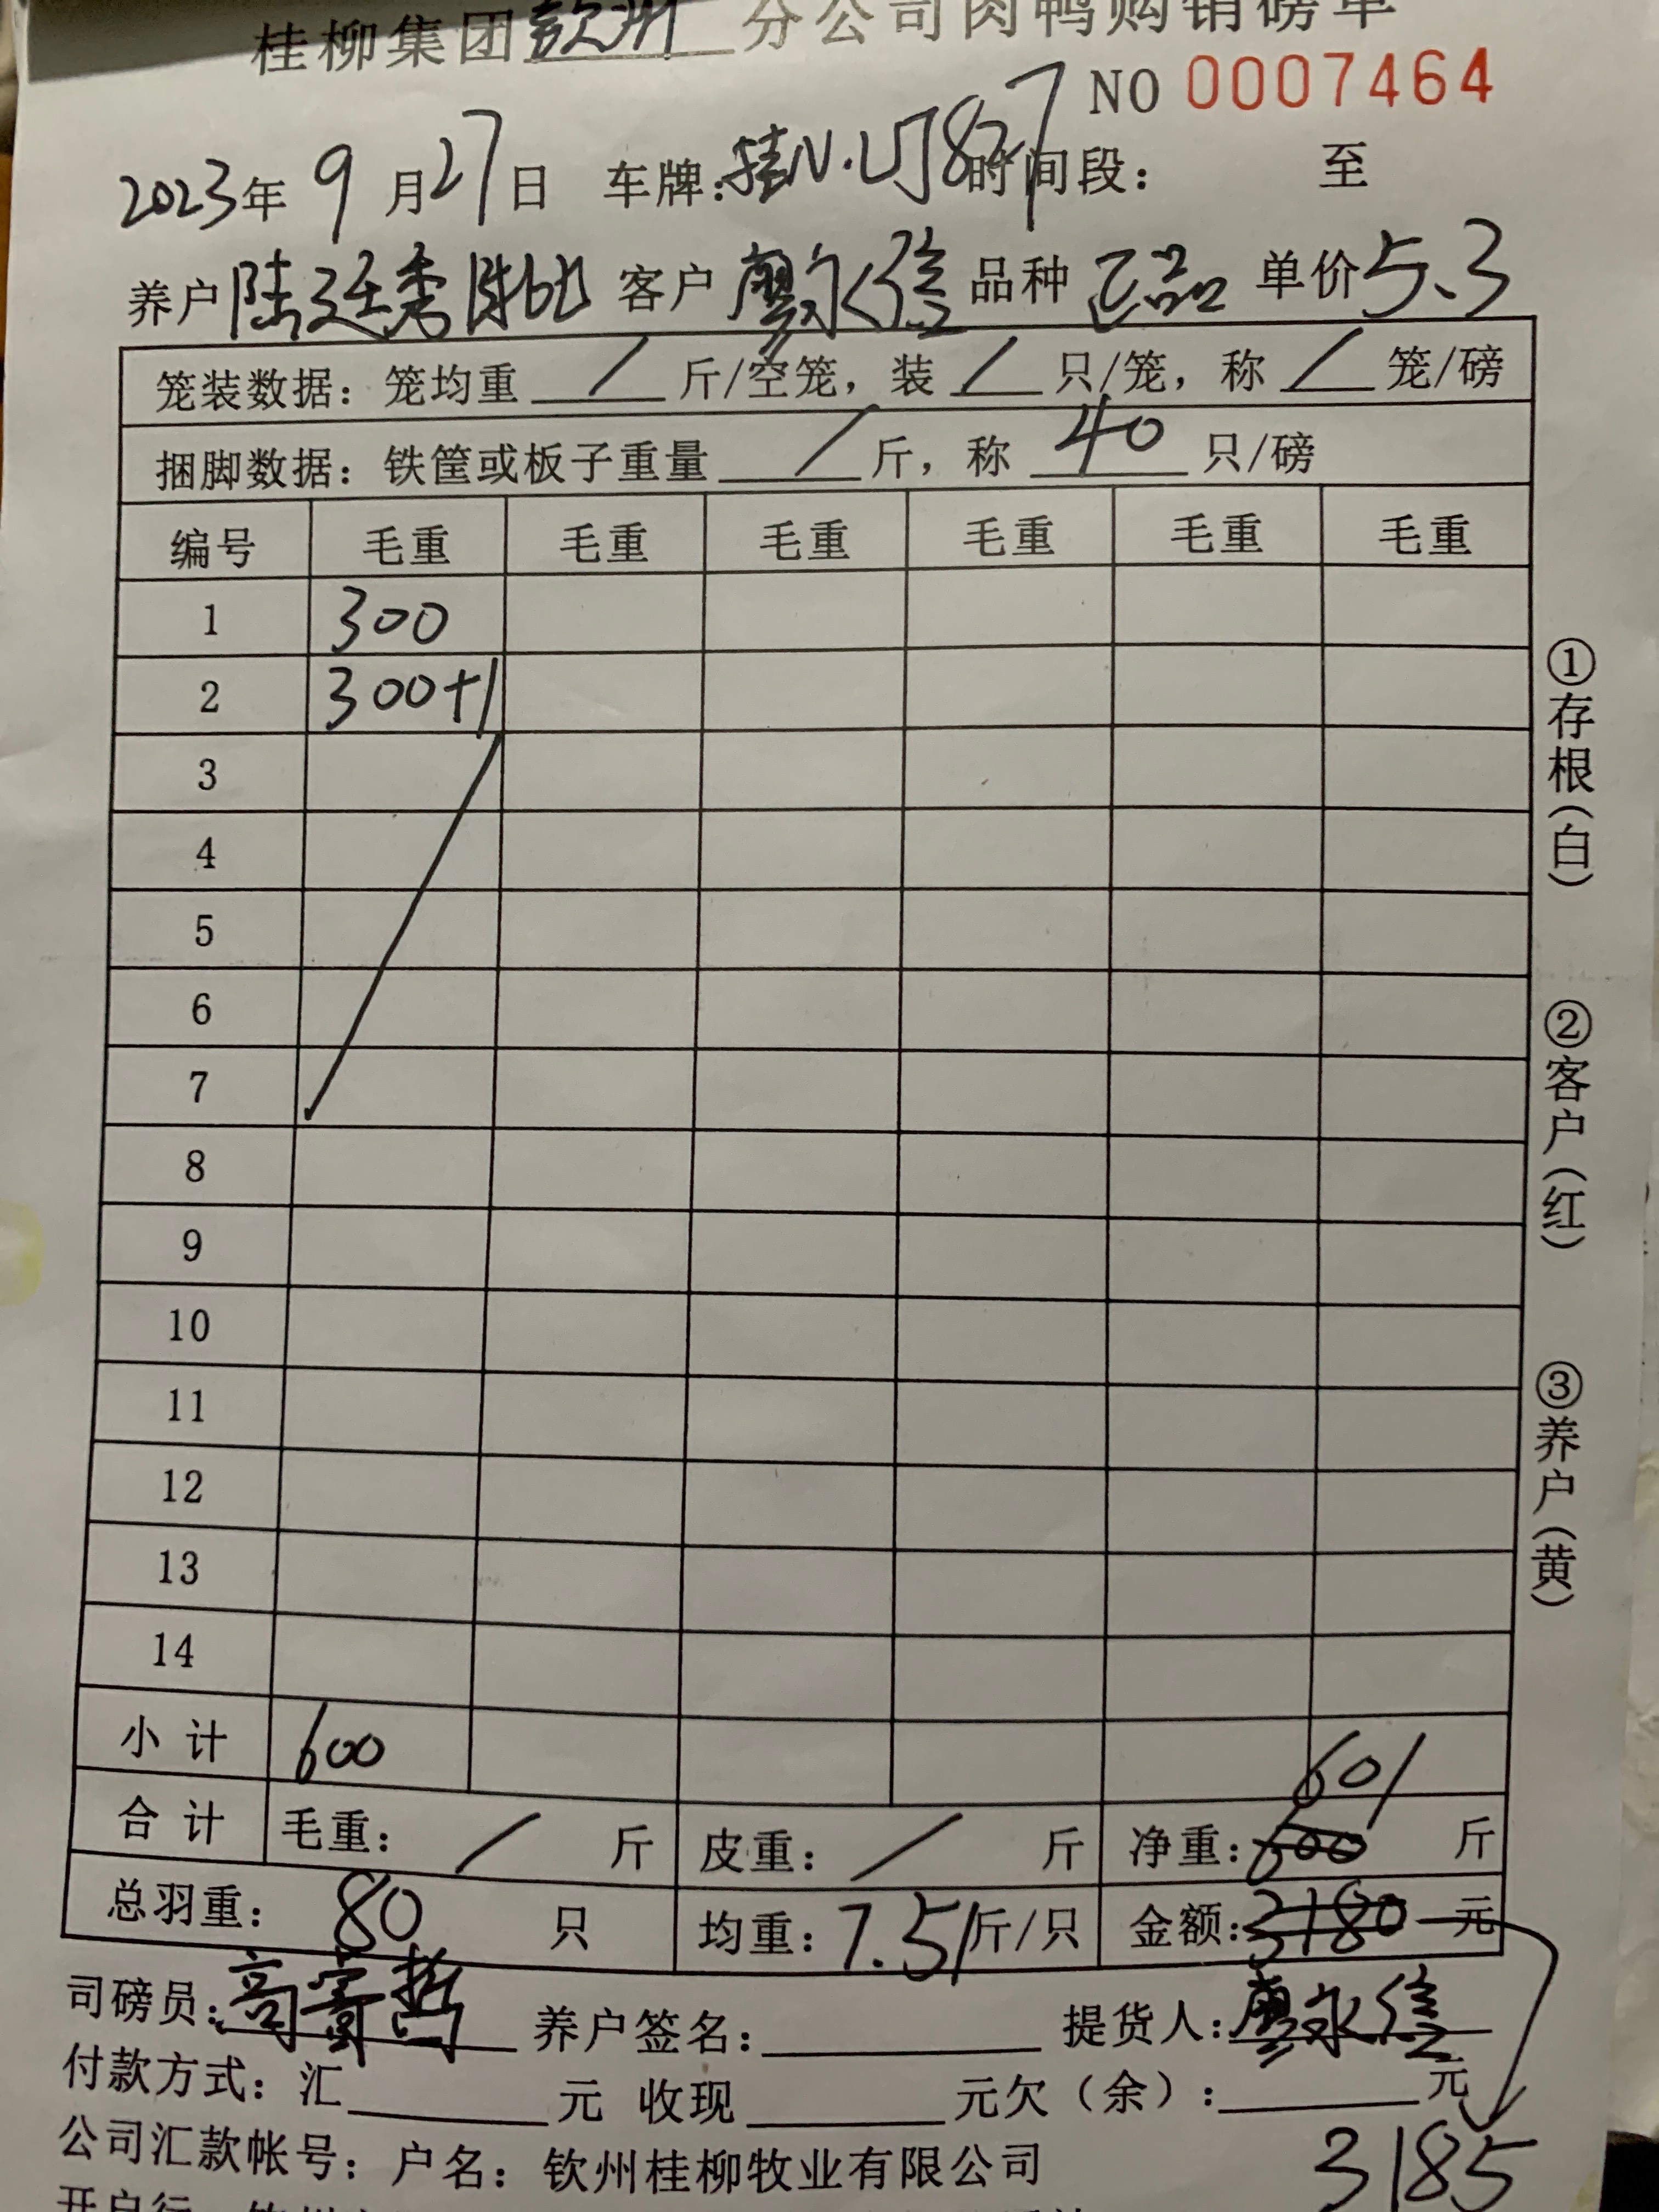 桂柳集团钦州分公司肉鸭购销磅单
NO 0007464
2023年 9月27日 车牌:桂N·UJ827 时间段: 至
养户 陆廷秀 客户 廖永信 品种 正品 单价5.3
笼装数据: 笼均重 / 斤/空笼, 装 / 只/笼, 称 / 笼/磅
捆脚数据: 铁筐或板子重量 / 斤, 称 40 只/磅
编号 毛重 毛重 毛重 毛重 毛重 毛重
1 300
2 300+1
3
4
5
6
7
8
9
10
11
12
13
14
小计 600
601
合计 毛重: / 斤 皮重: / 斤 净重:600 斤
总羽重: 80 只 均重: 7.51斤/只 金额:3180 元
司磅员:高寄哲 养户签名: 提货人:廖永信
付款方式: 汇 元 收现 元欠(余): 元
3185
公司汇款帐号: 户名: 钦州桂柳牧业有限公司
开户行:
①存根(白)
②客户(红)
③养户(黄)